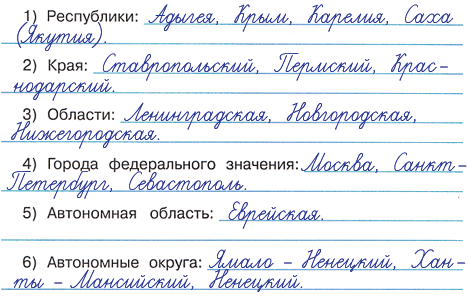 1) Республики: Адыгея, Крым, Карелия, Саха
(Якутия).
2) Края: Ставропольский, Пермский, Крас-
нодарский.
3) Области: Ленинградская, Новгородская,
Нижегородская.
4) Города федерального значения: Москва, Санкт-
Петербург, Севастополь.
5) Автономная область: Еврейская.
6) Автономные округа: Ямало - Ненецкий, Хан-
ты - Мансийский, Ненецкий.